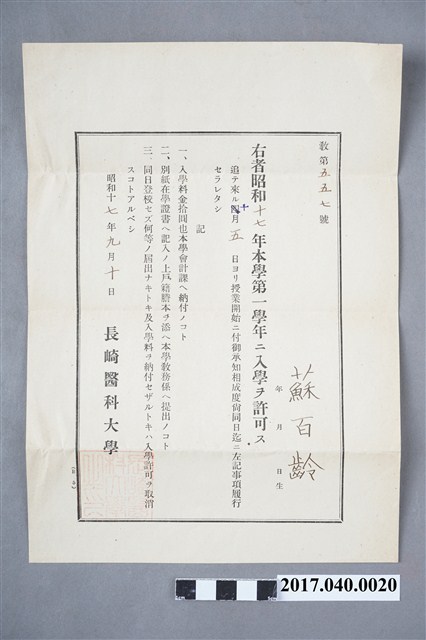 教第五五七號
蘇百齡
年 月 日生
右者昭和十七年本學第一學年ニ入學ヲ許可ス
追テ來ル十月五日ヨリ授業開始ニ付御承知相成度尙同日迄ニ左記事項履行
セラレタシ
記
一、入學料金拾圓也本學會計課ヘ納付ノコト
二、別紙在學證書ヘ記入ノ上戶籍謄本ヲ添ヘ本學敎務係ヘ提出ノコト
三、同日登校セズ何等ノ届出ナキトキ及入學料ヲ納付セザルトキハ入學許可ヲ取消
スコトアルベシ
昭和十七年九月十日
長崎醫科大學
2017.040.0020